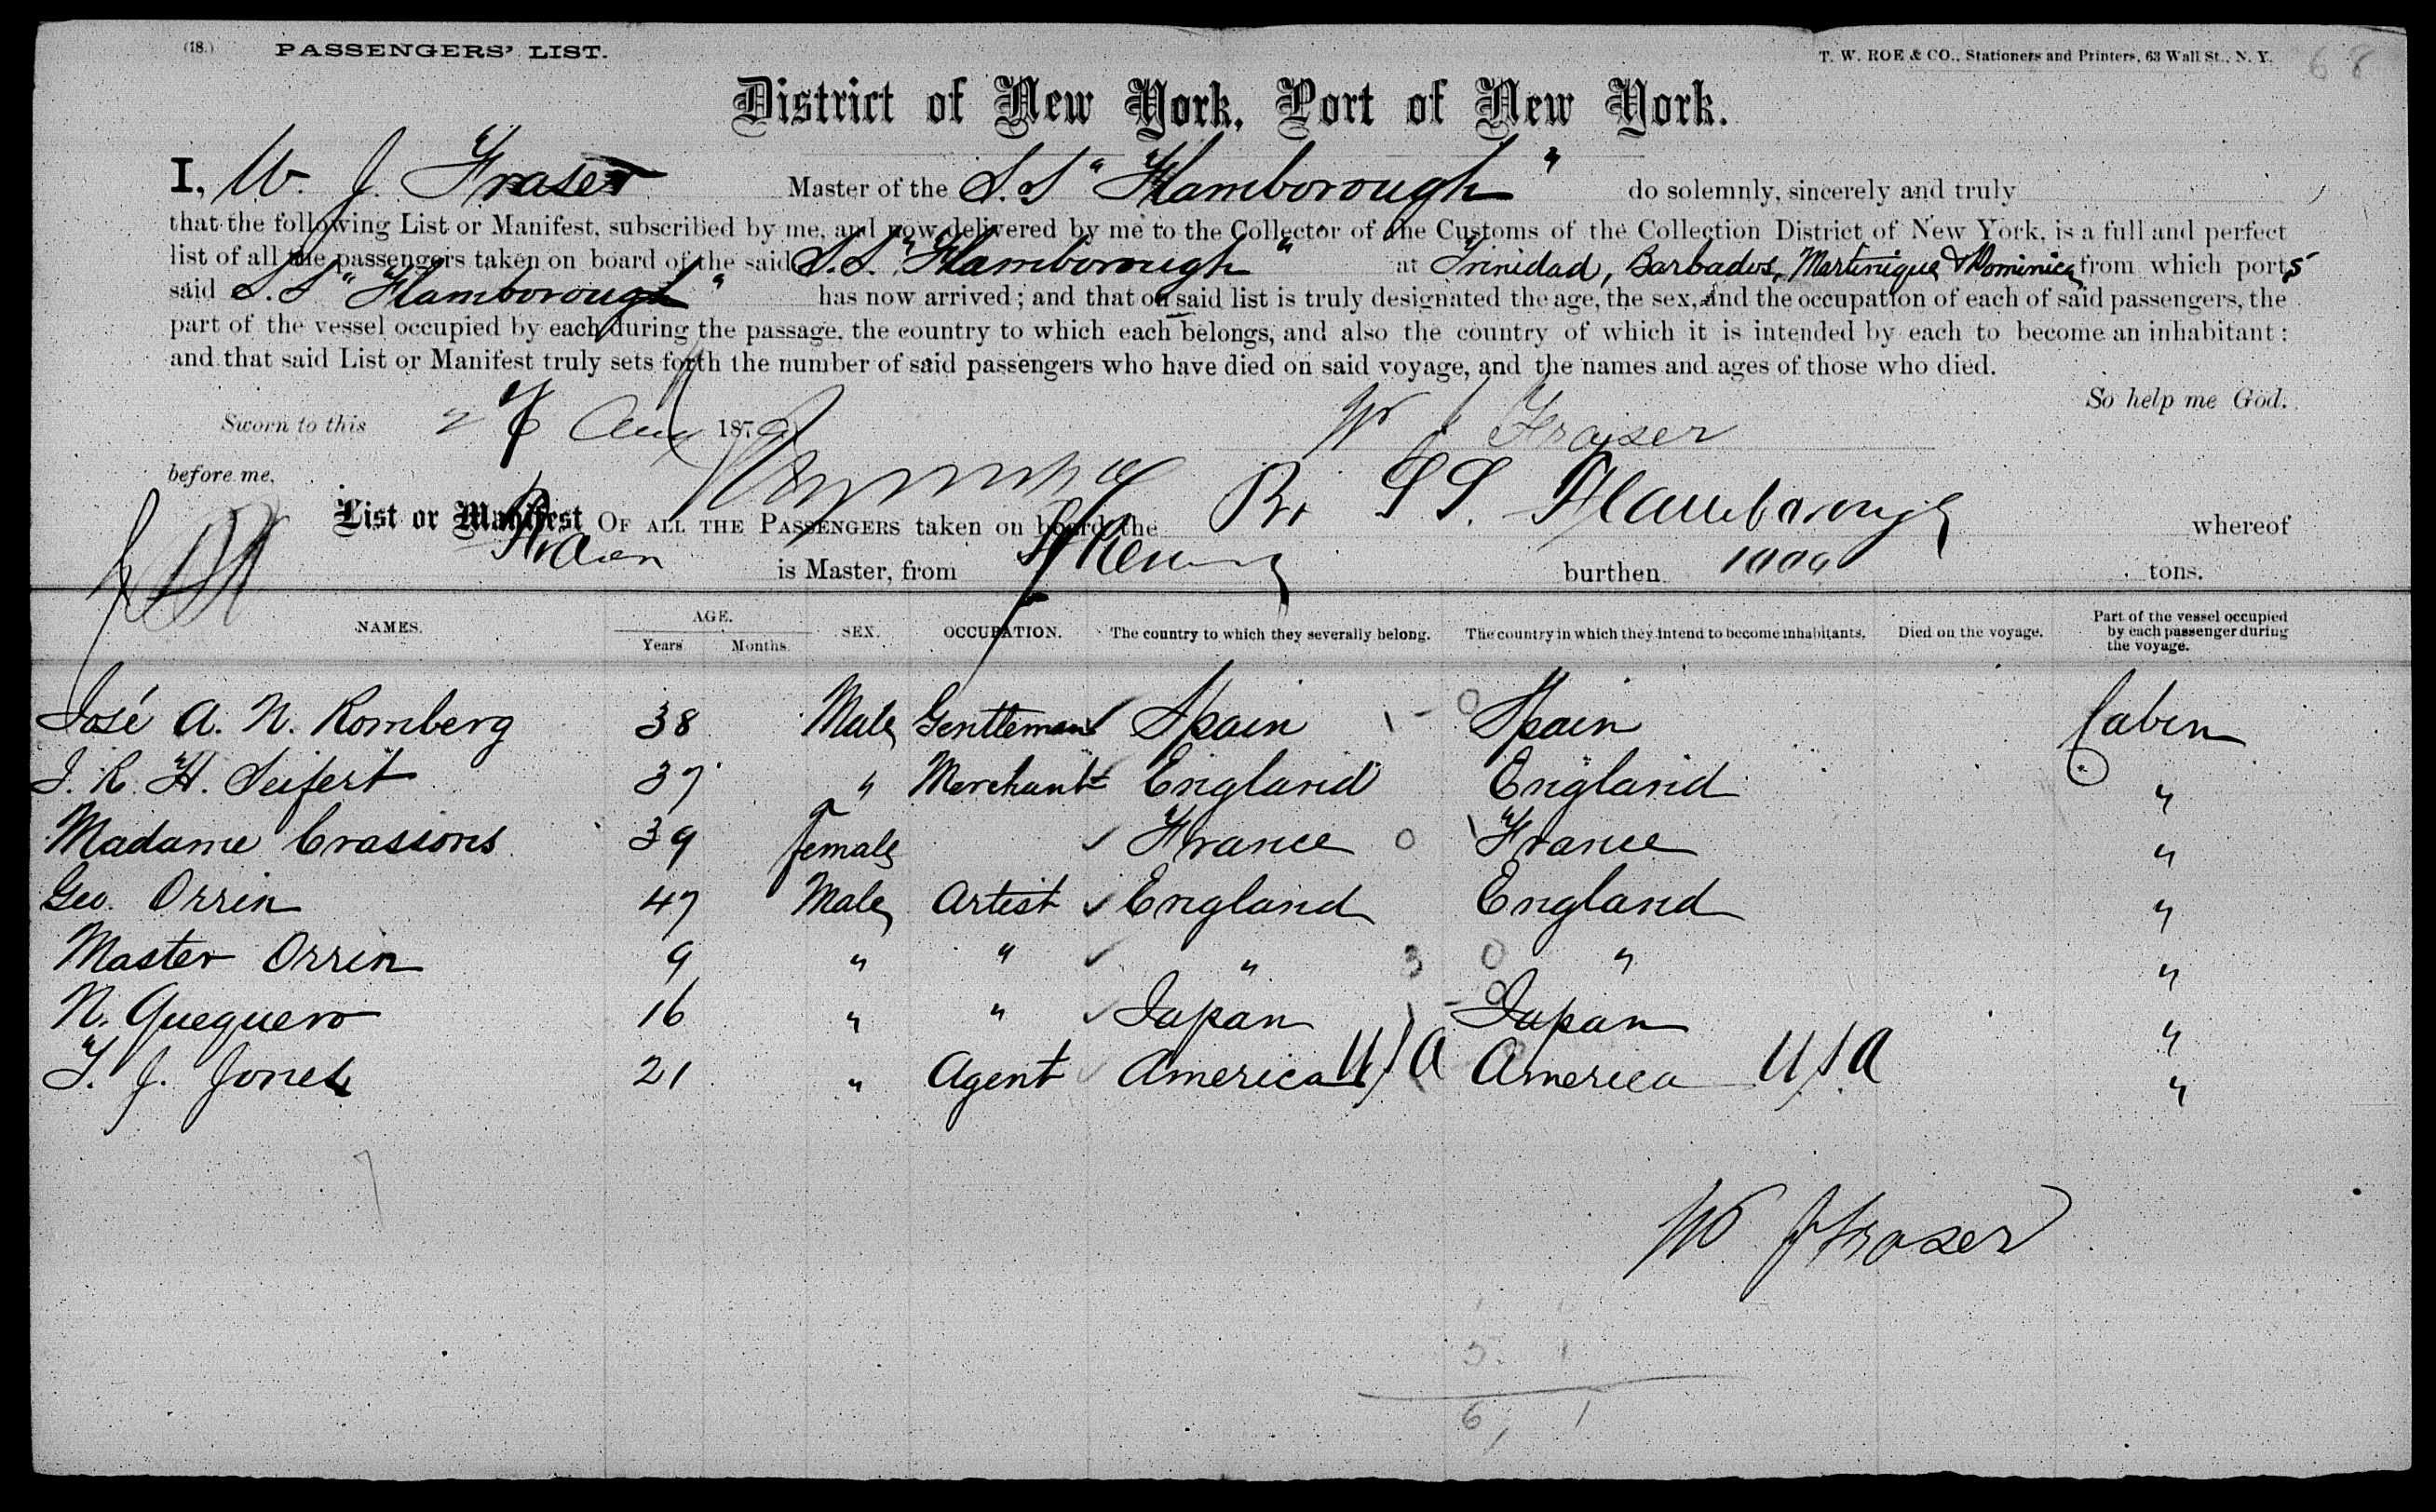 (18.) PASSENGERS' LIST. T. W. ROE & CO., Stationers and Printers, 63 Wall St., N. Y. 68
District of New York, Port of New York.
I, W. J. Fraser Master of the S.S "Flamborough" do solemnly, sincerely and truly
that the following List or Manifest, subscribed by me, and now delivered by me to the Collector of the Customs of the Collection District of New York, is a full and perfect
list of all the passengers taken on board of the said S.S. "Flamborough" at Trinidad, Barbados, Martinique & Dominica from which ports
said S.S "Flamborough" has now arrived; and that on said list is truly designated the age, the sex, and the occupation of each of said passengers, the
part of the vessel occupied by each during the passage, the country to which each belongs, and also the country of which it is intended by each to become an inhabitant:
and that said List or Manifest truly sets forth the number of said passengers who have died on said voyage, and the names and ages of those who died.
So help me God.
Sworn to this 26 Aug 1879 W J Fraser
before me,
List or Manifest OF ALL THE PASSENGERS taken on board the Br SS. Flamborough whereof
is Master, from burthen tons.
NAMES. AGE. Years Months. SEX. OCCUPATION. The country to which they severally belong. The country in which they intend to become inhabitants. Died on the voyage. Part of the vessel occupied by each passenger during the voyage.
José A. N. Romberg 38 Male Gentleman Spain 1 - 0 Spain Cabin
J. R. H. Seifert 37 " Merchant England England "
Madame Crassons 39 Female France 0 1 France "
Geo. Orrin 47 Male Artist England England "
Master Orrin 9 " " " 3 0 " "
N. Gueguero 16 " " Japan 1 - 0 Japan "
T. J. Jones 21 " Agent America USA America USA "
7
W J Fraser
5 1
6 1